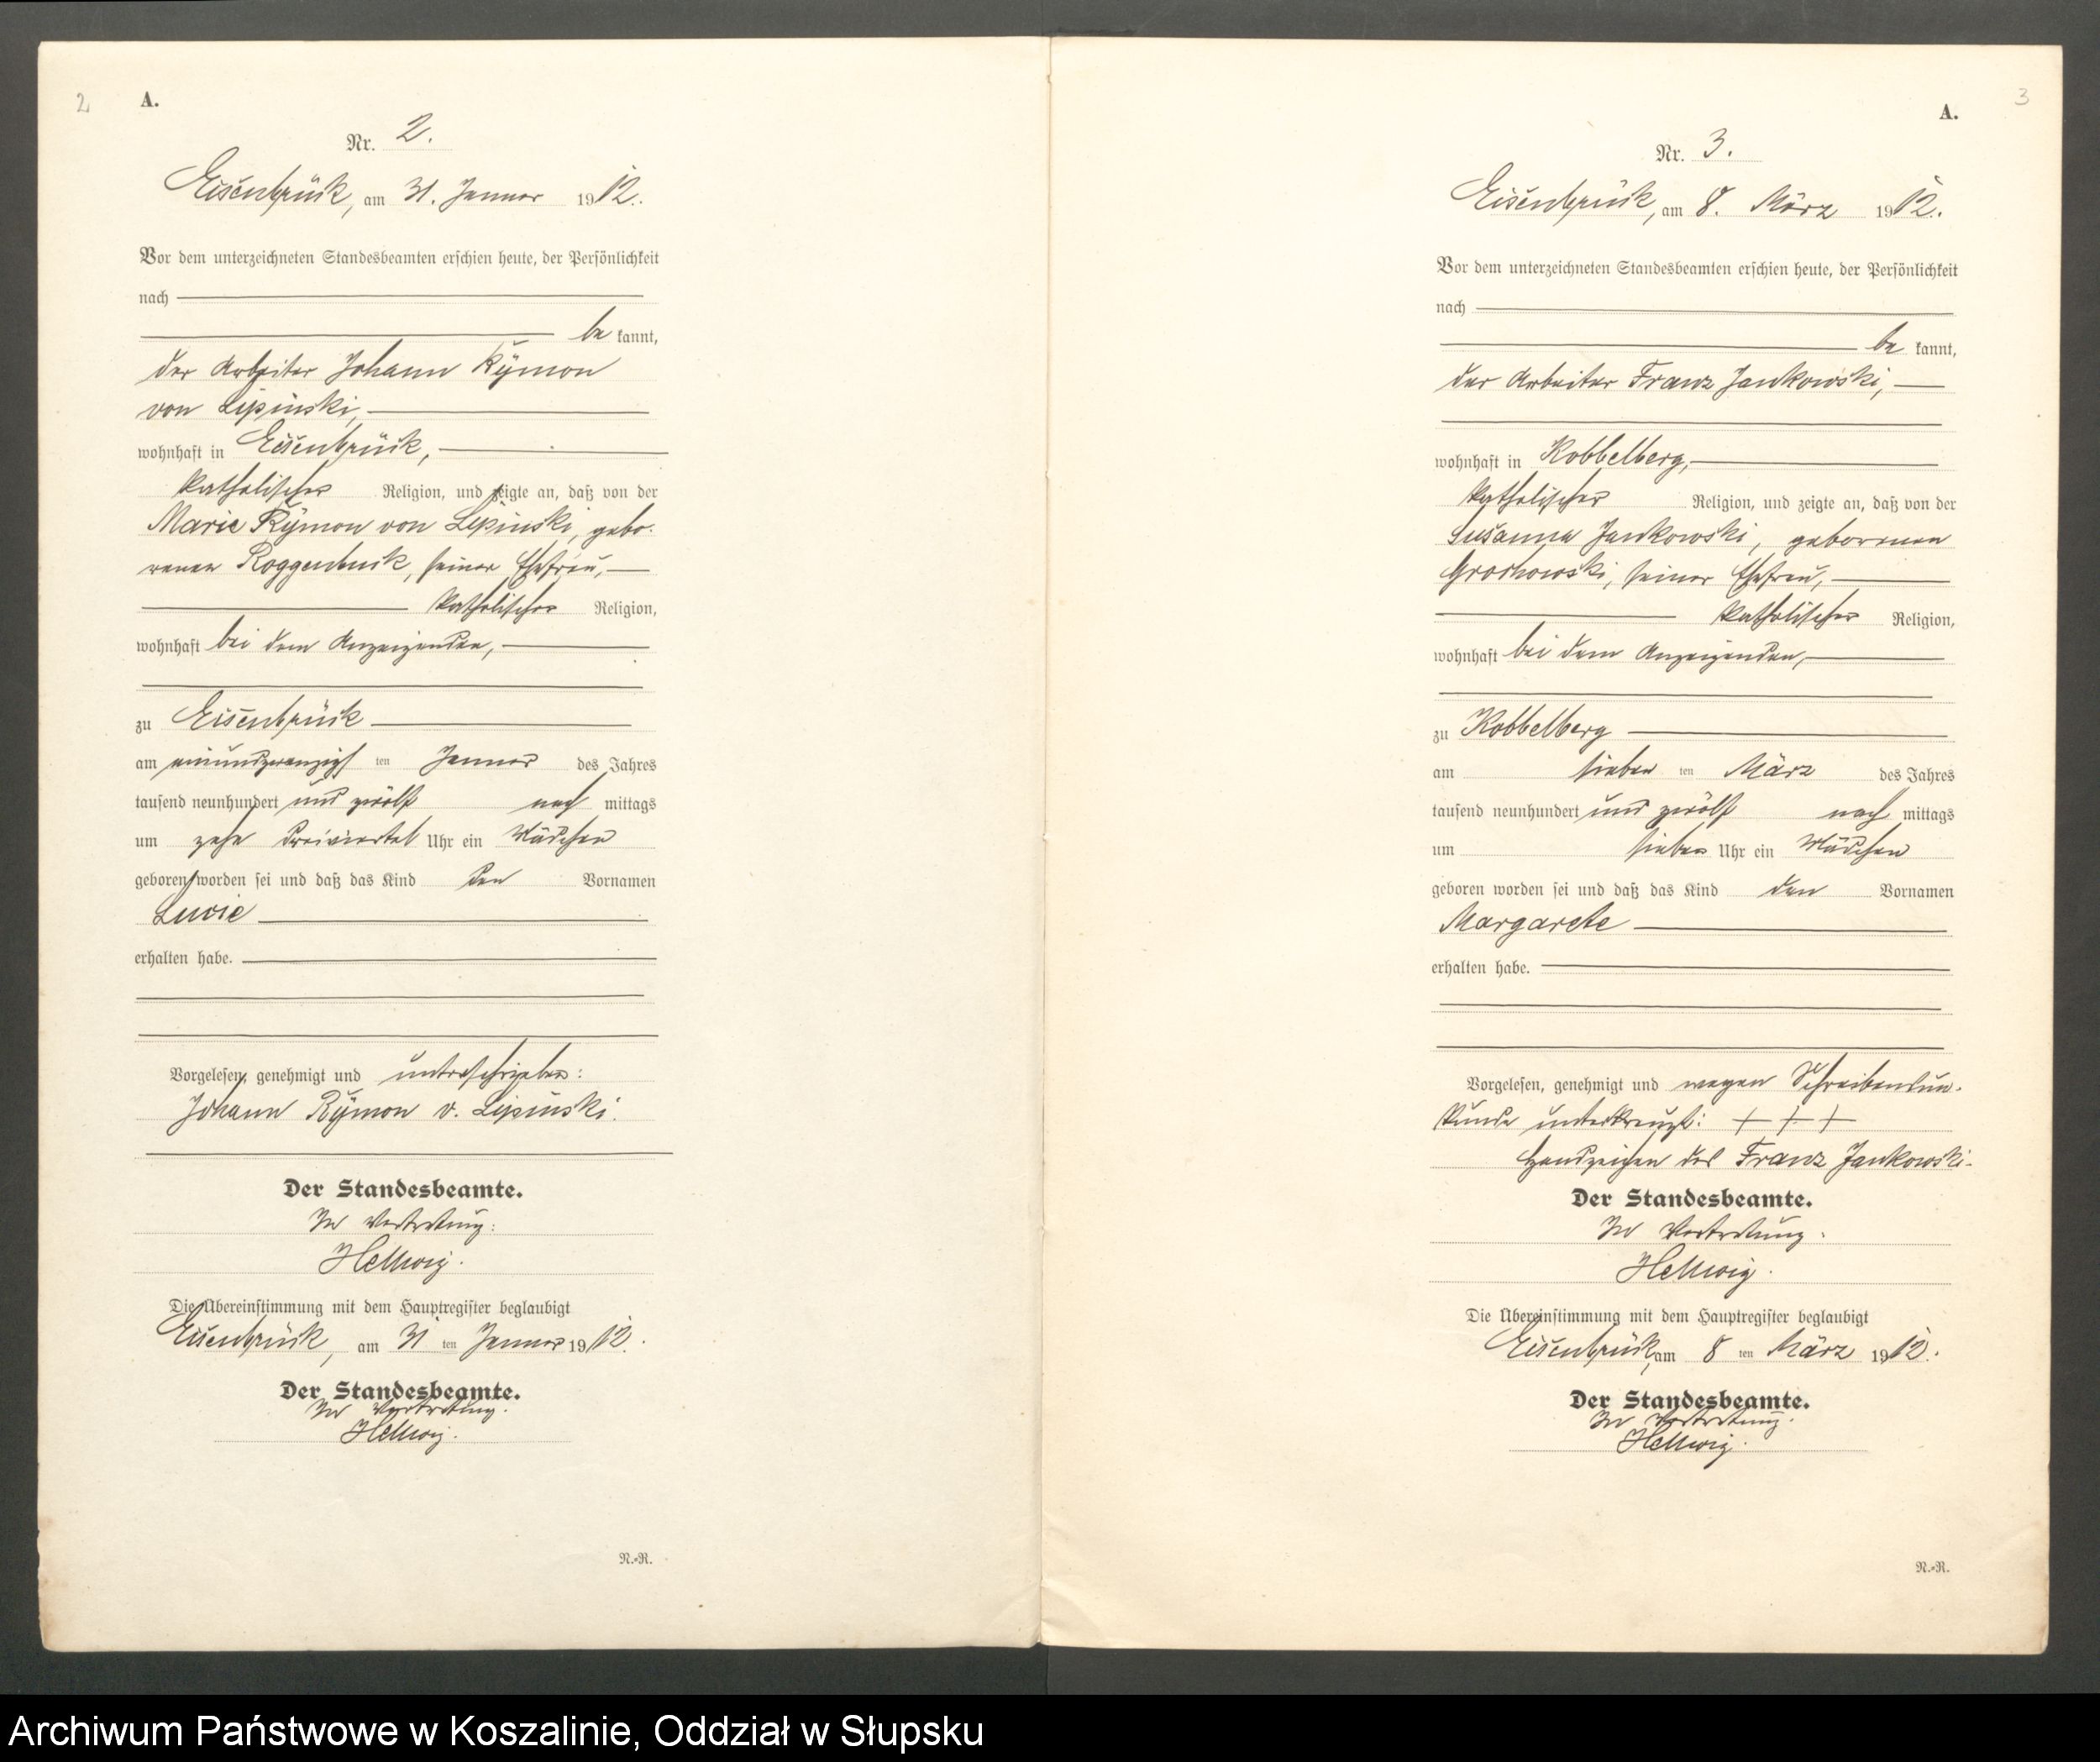 2
A.
Nr. 2.
Eisenbrück, am 31. Januar 1912.
Vor dem unterzeichneten Standesbeamten erschien heute, der Persönlichkeit
nach
be kannt,
der Arbeiter Johann Rÿmon
von Lipinski,
wohnhaft in Eisenbrück,
katholischer Religion, und zeigte an, daß von der
Marie Rÿmon von Lipinski, gebo-
renen Roggenbuck, seiner Ehefrau,
katholischer Religion,
wohnhaft bei dem Anzeigenden,
zu Eisenbrück
am einundzwanzigs ten Januar des Jahres
tausend neunhundert und zwölf nach mittags
um zehn dreiviertel Uhr ein Mädchen
geboren worden sei und daß das Kind den Vornamen
Lucie
erhalten habe.
Vorgelesen, genehmigt und unterschrieben:
Johann Rÿmon v. Lipinski.
Der Standesbeamte.
In Vertretung:
Hellwig.
Die Übereinstimmung mit dem Hauptregister beglaubigt
Eisenbrück, am 31 ten Januar 1912.
Der Standesbeamte.
In Vertretung.
Hellwig.
N.-R.
3
A.
Nr. 3.
Eisenbrück, am 8. März 1912.
Vor dem unterzeichneten Standesbeamten erschien heute, der Persönlichkeit
nach
be kannt,
der Arbeiter Franz Jankowski,
wohnhaft in Kobbelberg,
katholischer Religion, und zeigte an, daß von der
Susanna Jankowski, geborenen
Grochowski, seiner Ehefrau,
katholischer Religion,
wohnhaft bei dem Anzeigenden,
zu Kobbelberg
am sieben ten März des Jahres
tausend neunhundert und zwölf nach mittags
um sieben Uhr ein Mädchen
geboren worden sei und daß das Kind den Vornamen
Margarete
erhalten habe.
Vorgelesen, genehmigt und wegen Schreibensun-
kunde unterkreuzt: + + +
Handzeichen des Franz Jankowski.
Der Standesbeamte.
In Vertretung.
Hellwig.
Die Übereinstimmung mit dem Hauptregister beglaubigt
Eisenbrück, am 8 ten März 1912.
Der Standesbeamte.
In Vertretung.
Hellwig.
N.-R.
Archiwum Państwowe w Koszalinie, Oddział w Słupsku